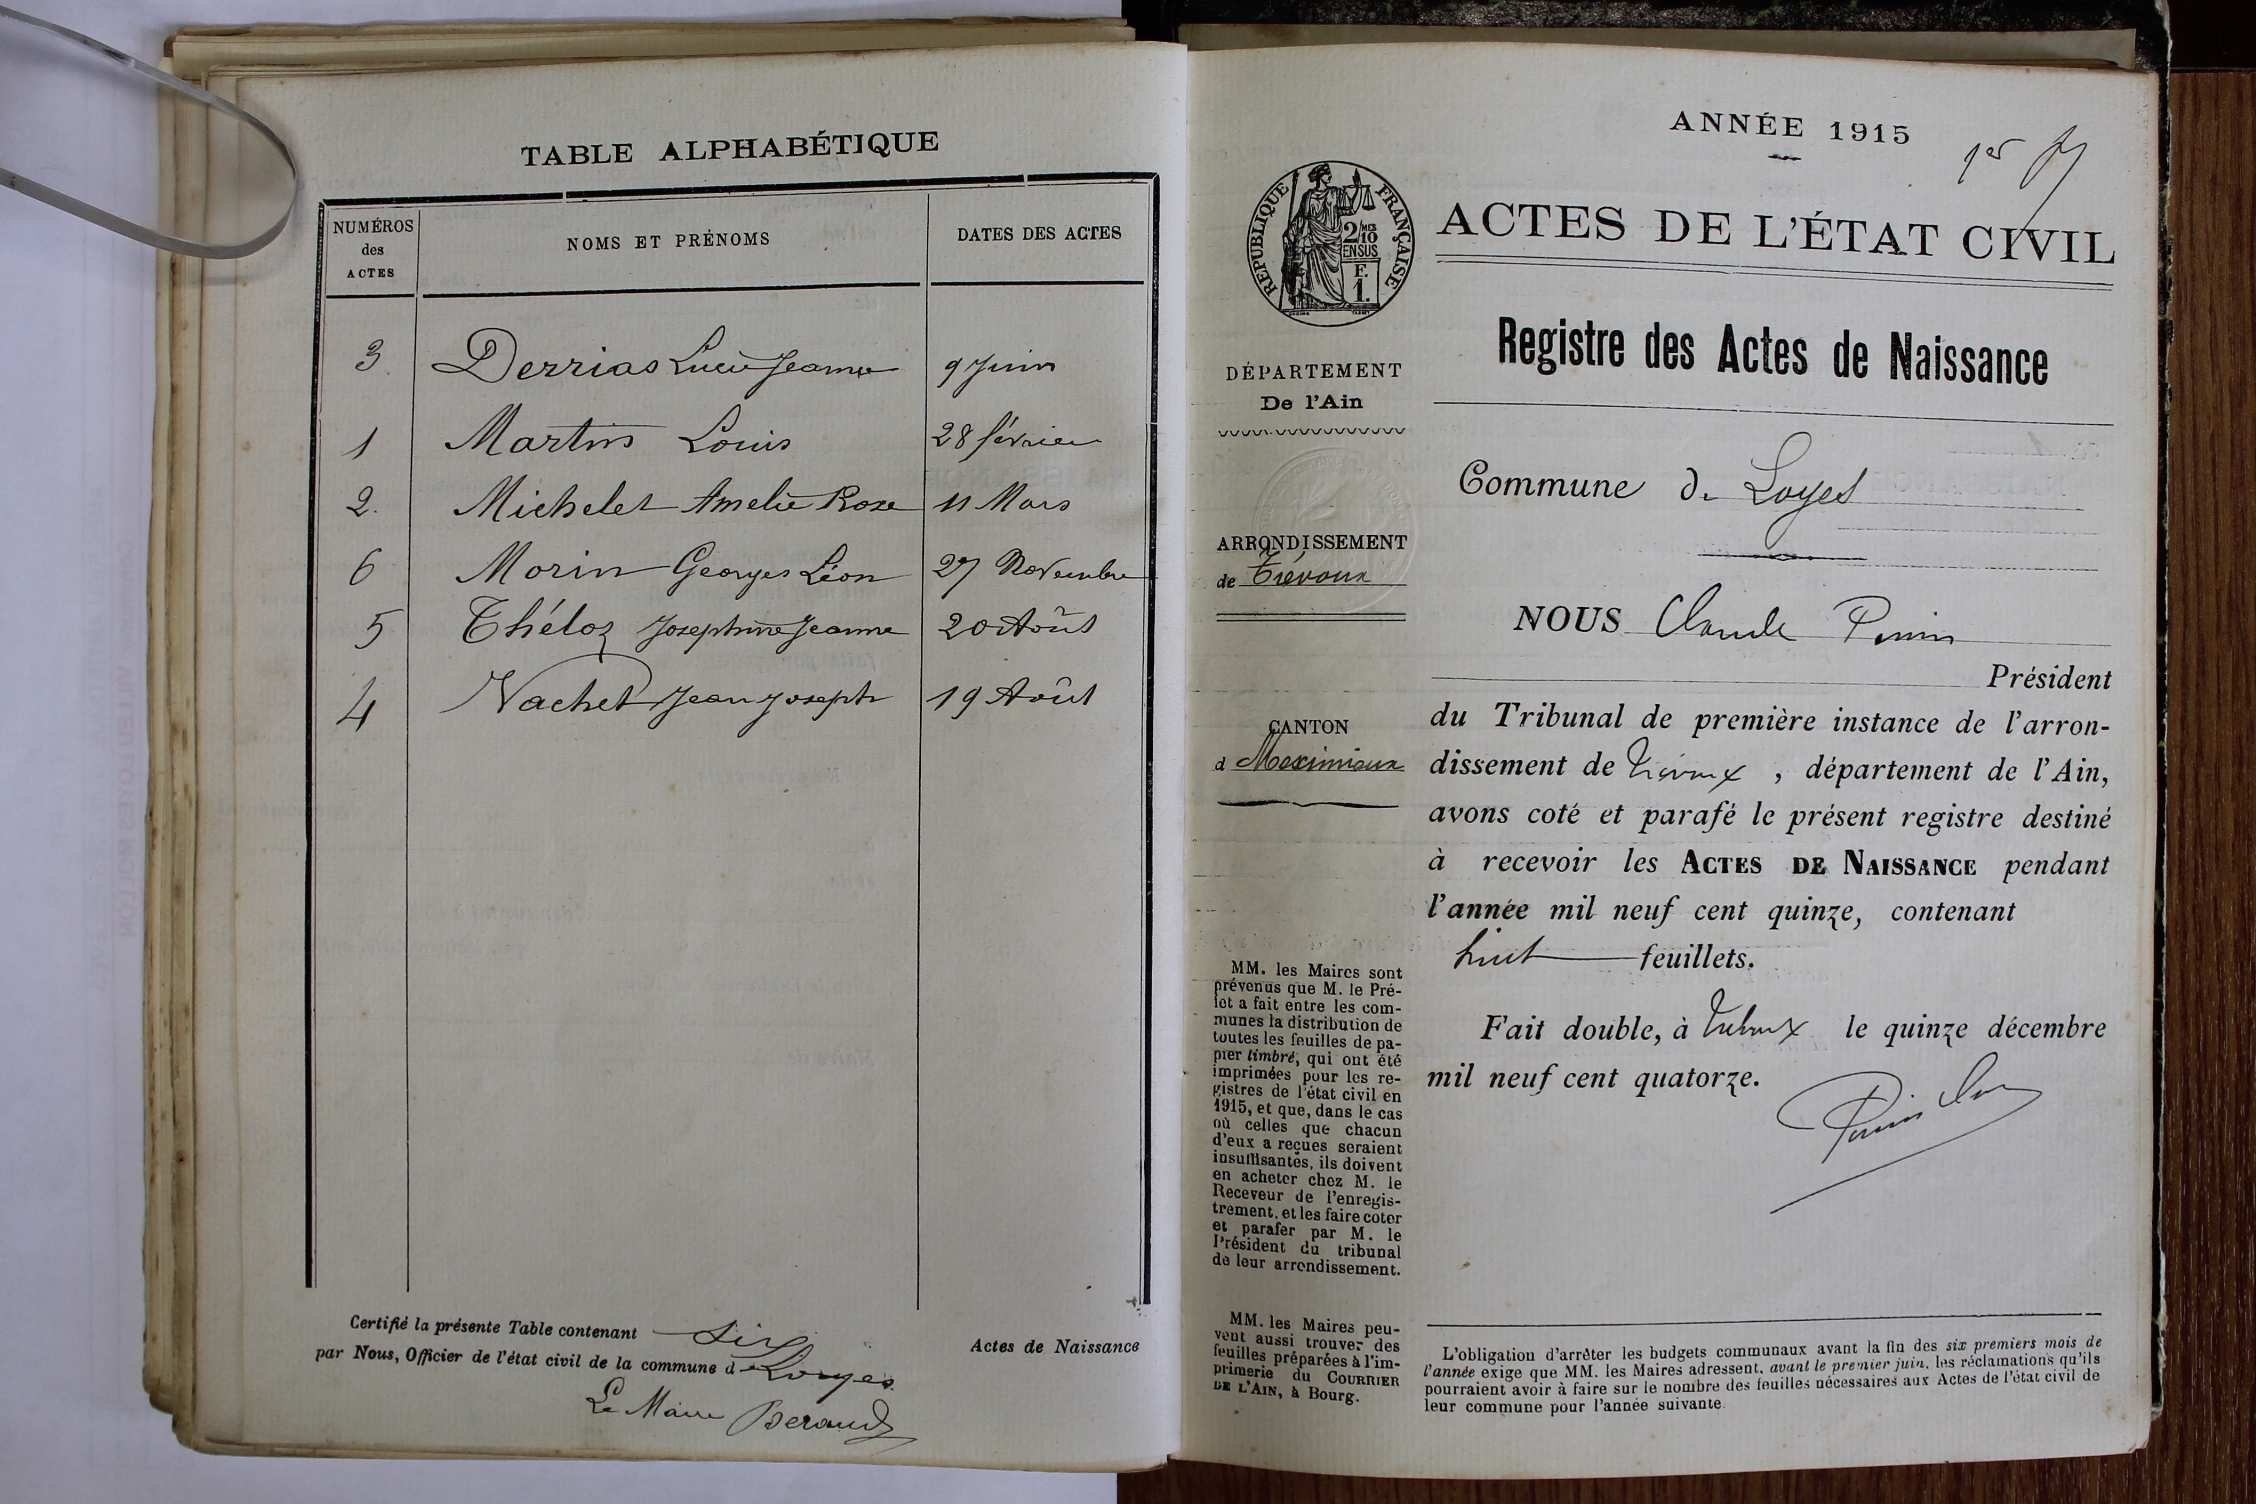 TABLE ALPHABÉTIQUE
NUMÉROS des ACTES NOMS ET PRÉNOMS DATES DES ACTES
3 Derrias Lucie Jeanne 9 Juin
1 Martin Louis 28 février
2. Michelet Amelie Rose 11 Mars
6 Morin Georges Léon 27 Novembre
5 Théloz Josephine Jeanne 20 Août
4 Vachet Jean Joseph 19 Août
Certifié la présente Table contenant six Actes de Naissance
par Nous, Officier de l'état civil de la commune d Loyes
Le Maire Beraud
ANNÉE 1915
1er
RÉPUBLIQUE FRANÇAISE
2/10 EN SUS
F. 1.
ACTES DE L'ÉTAT CIVIL
Registre des Actes de Naissance
DÉPARTEMENT
De l'Ain
Commune de Loyes
ARRONDISSEMENT
de Trévoux
CANTON
d Meximieux
NOUS Claude
Président
du Tribunal de première instance de l'arron-
dissement de Trévoux, département de l'Ain,
avons coté et parafé le présent registre destiné
à recevoir les ACTES DE NAISSANCE pendant
l'année mil neuf cent quinze, contenant
huit feuillets.
Fait double, à Trévoux le quinze décembre
mil neuf cent quatorze.
MM. les Maires sont
prévenus que M. le Pré-
fet a fait entre les com-
munes la distribution de
toutes les feuilles de pa-
pier timbré, qui ont été
imprimées pour les re-
gistres de l'état civil en
1915, et que, dans le cas
où celles que chacun
d'eux a reçues seraient
insuffisantes, ils doivent
en acheter chez M. le
Receveur de l'enregis-
trement, et les faire coter
et parafer par M. le
Président du tribunal
de leur arrondissement.
MM. les Maires peu-
vent aussi trouver des
feuilles préparées à l'im-
primerie du COURRIER
DE L'AIN, à Bourg.
L'obligation d'arrêter les budgets communaux avant la fin des six premiers mois de
l'année exige que MM. les Maires adressent, avant le premier juin, les réclamations qu'ils
pourraient avoir à faire sur le nombre des feuilles nécessaires aux Actes de l'état civil de
leur commune pour l'année suivante.